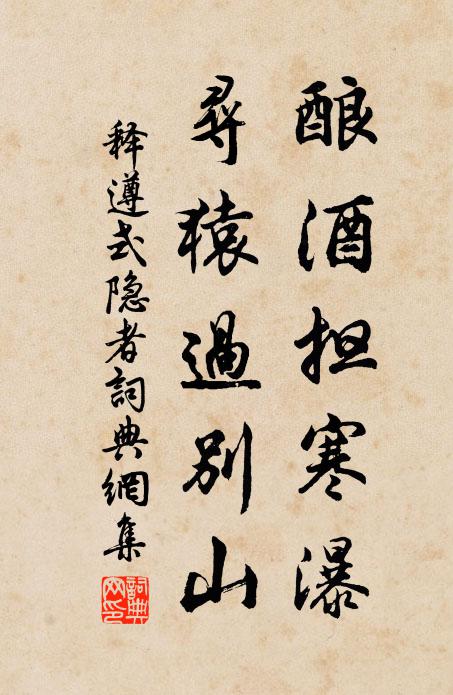 酿酒担寒瀑
尋猿過別山
释遵式隐者詞典網集
詞典網印